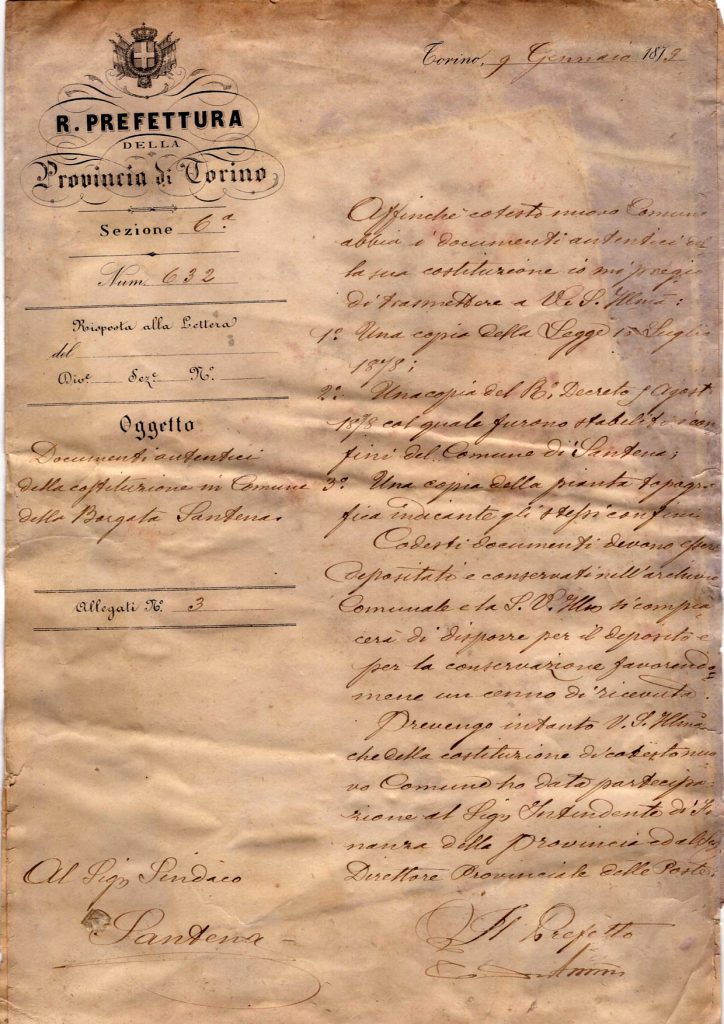 Torino, 9 Gennaio 1879
R. PREFETTURA
DELLA
Provincia di Torino
Sezione 6ª
Num. 632
Risposta alla Lettera
del
Divᵉ. Sezᵉ. Nº.
Oggetto
Documenti autentici
della costituzione in Comune
della Borgata Santena.
Allegati Nº. 3
Affinchè cotesto nuovo Comune
abbia i documenti autentici
la sua costituzione io mi pregio
di trasmettere a V. S. Illma:
1º. Una copia della Legge 15 Luglio
1878;
2º. Una copia del R. Decreto 5 Agost
1878 col quale furono stabiliti i con
fini del Comune di Santena;
3º. Una copia della pianta topogra
fica indicante gli stessi confini
Codesti documenti devono essere
depositati e conservati nell'archivio
Comunale e la S. V. Illma si compia
cerà di disporre per il deposito e
per la conservazione favorendo
mene un cenno di ricevuta.
Prevengo intanto V. S. Illma
che della costituzione di cotesto nuo
vo Comune ho dato partecipa
zione al Sigr Intendente di Fi
nanza della Provincia ed al Sigr
Direttore Provinciale delle Poste.
Al Sigr Sindaco
Santena
Il Prefetto